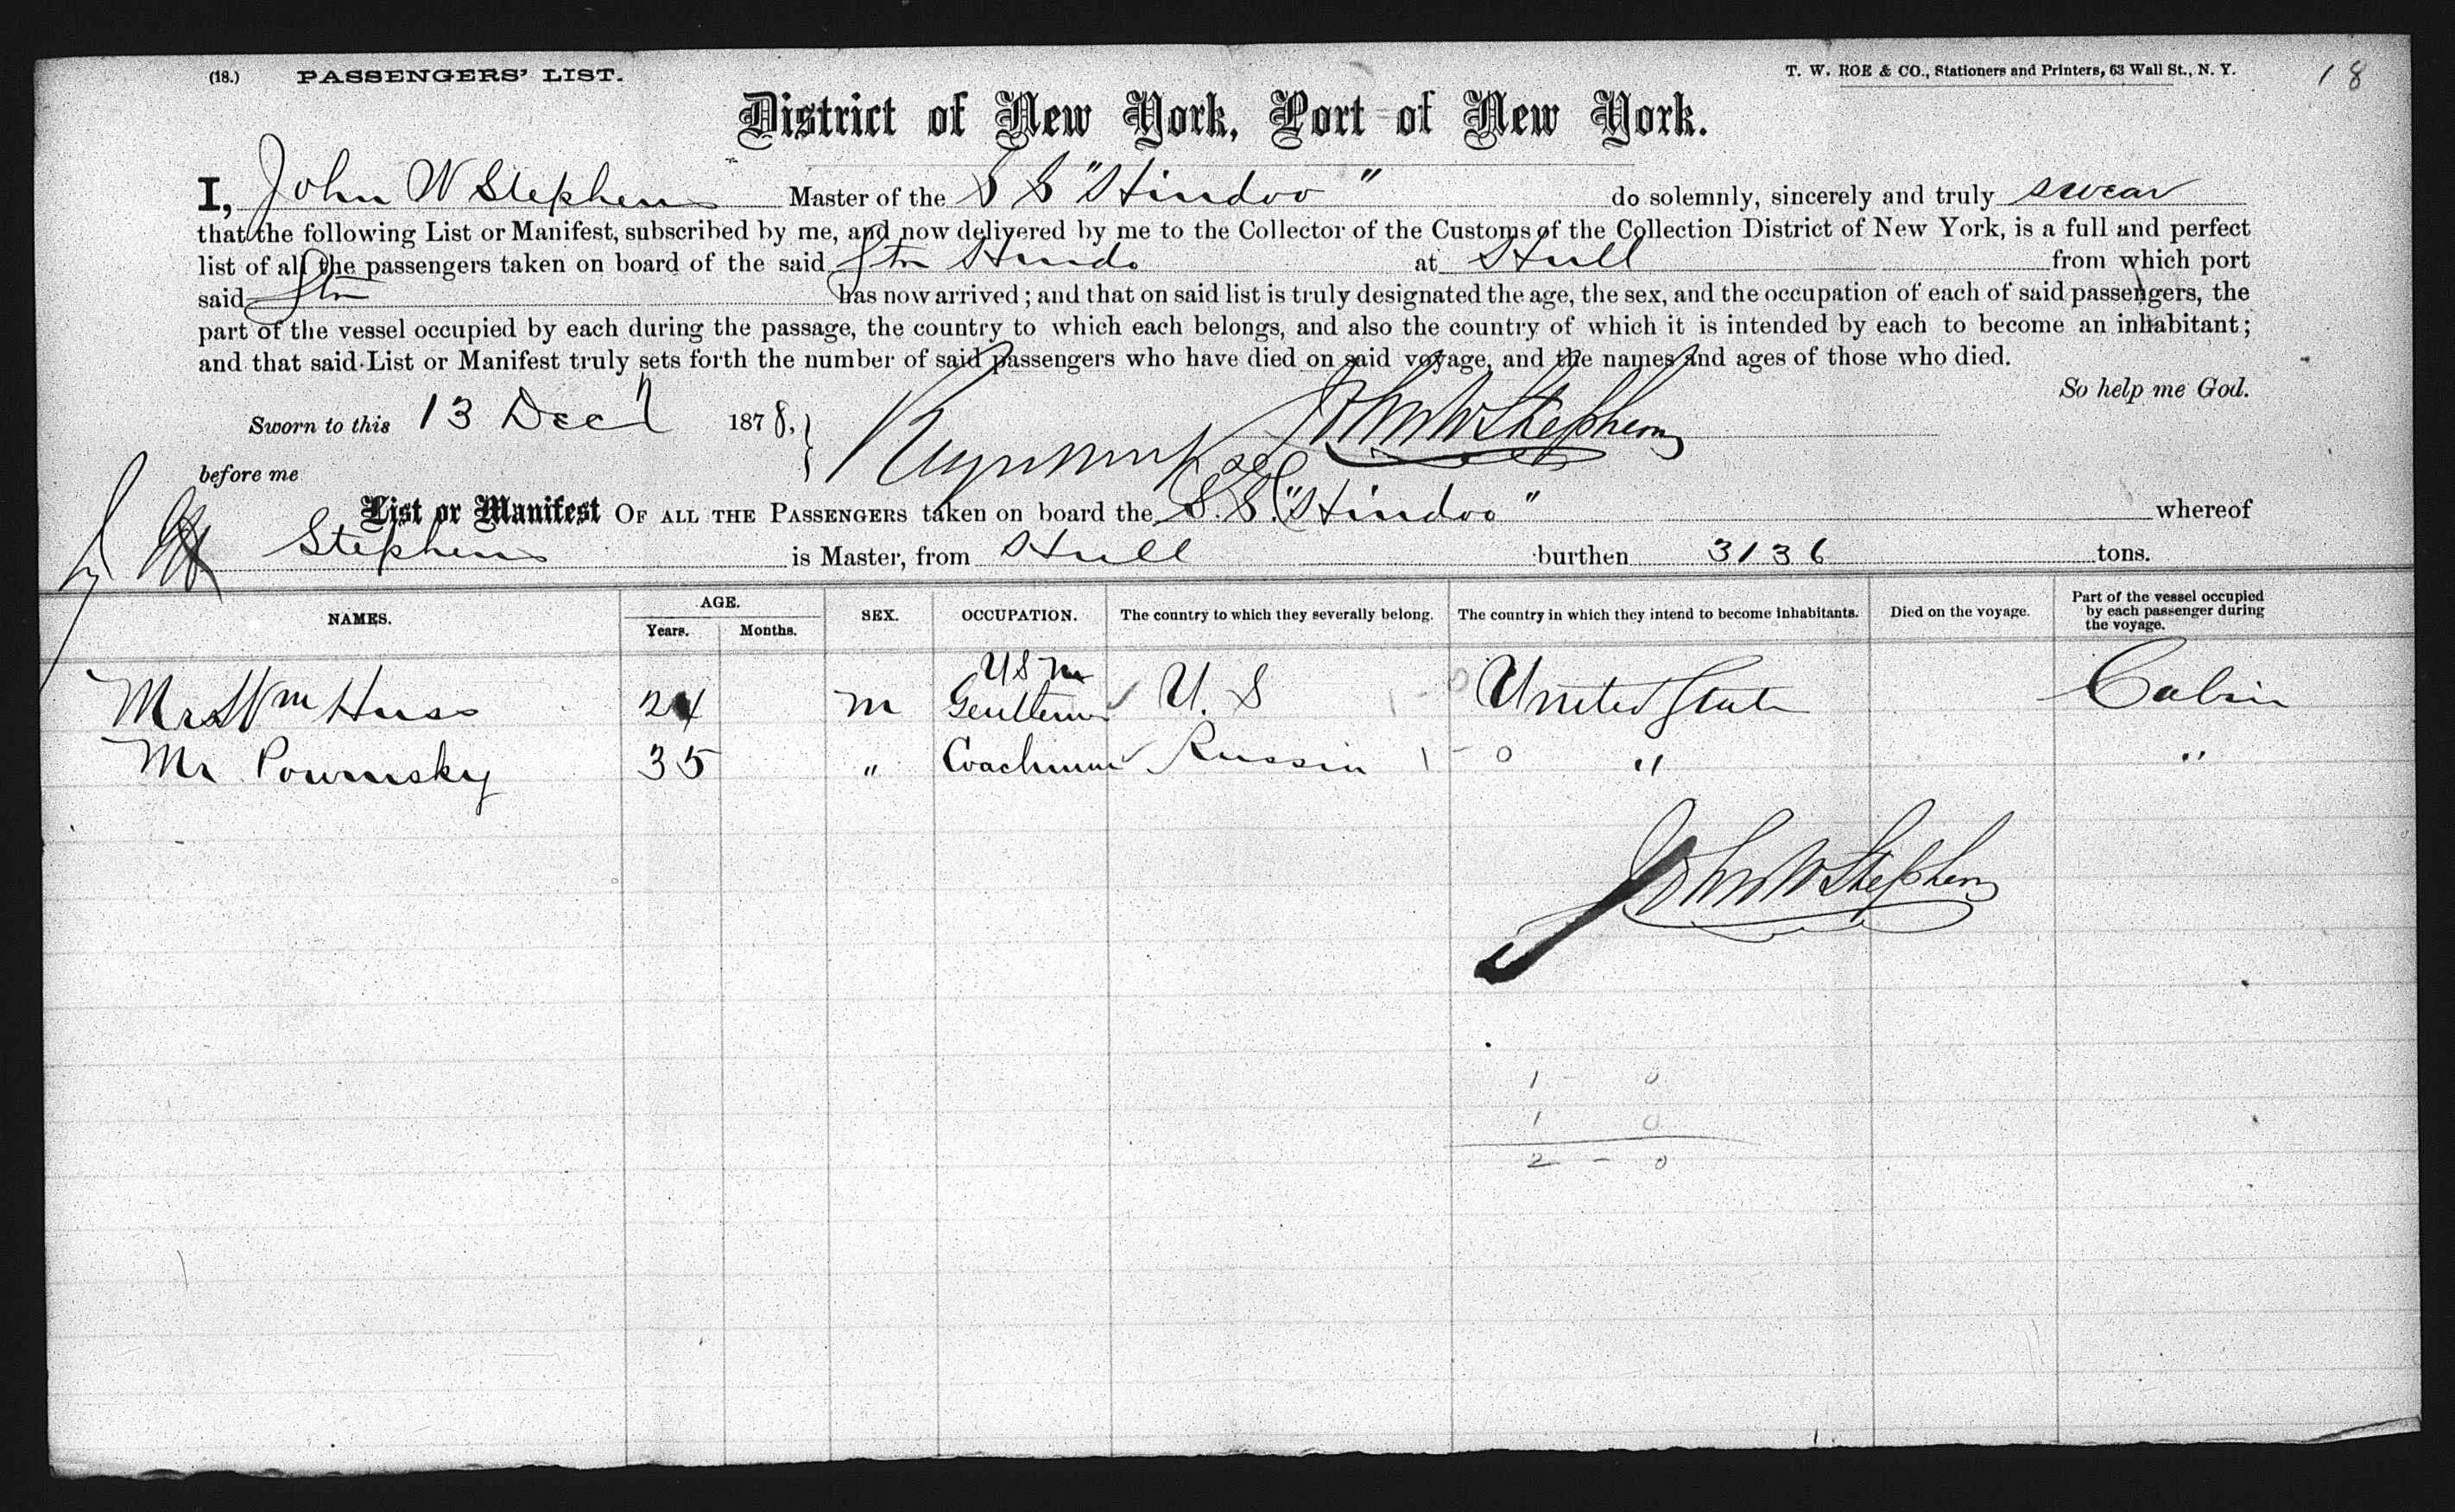 (18.) PASSENGERS' LIST. T. W. ROE & CO., Stationers and Printers, 63 Wall St., N. Y. 18
District of New York, Port of New York.
I, John W Stephens Master of the S S "Hindoo" do solemnly, sincerely and truly swear
that the following List or Manifest, subscribed by me, and now delivered by me to the Collector of the Customs of the Collection District of New York, is a full and perfect
list of all the passengers taken on board of the said Str Hindo at Hull from which port
said Str has now arrived; and that on said list is truly designated the age, the sex, and the occupation of each of said passengers, the
part of the vessel occupied by each during the passage, the country to which each belongs, and also the country of which it is intended by each to become an inhabitant;
and that said List or Manifest truly sets forth the number of said passengers who have died on said voyage, and the names and ages of those who died.
So help me God.
Sworn to this 13 Dec 1878, John W Stephens
before me
List or Manifest OF ALL THE PASSENGERS taken on board the S. S. "Hindoo" whereof
Stephens is Master, from Hull burthen 3136 tons.
NAMES. AGE. Years. Months. SEX. OCCUPATION. The country to which they severally belong. The country in which they intend to become inhabitants. Died on the voyage. Part of the vessel occupied by each passenger during the voyage.
U S M
Mr Wm Huss 24 M Gentleman U. S United States Cabin
Mr Pownsky 35 " Coachman Russia 1 - 0 " "
John W Stephens
1 - 0
1 0
2 - 0